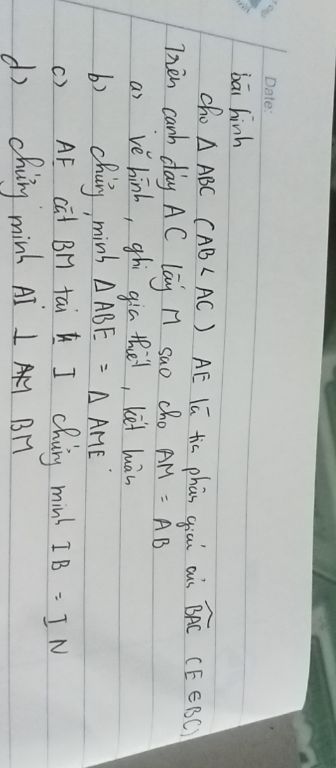 Date:
bài hình
cho Δ ABC (AB < AC) AE là tia phân giác của BAC (E ∈ BC)
Trên cạnh đáy AC lấy M sao cho AM = AB
a) vẽ hình, ghi giả thiết, kết luận
b) chứng minh Δ ABE = Δ AME
c) AE cắt BM tại I chứng minh IB = IN
d) chứng minh AI ⊥ BM